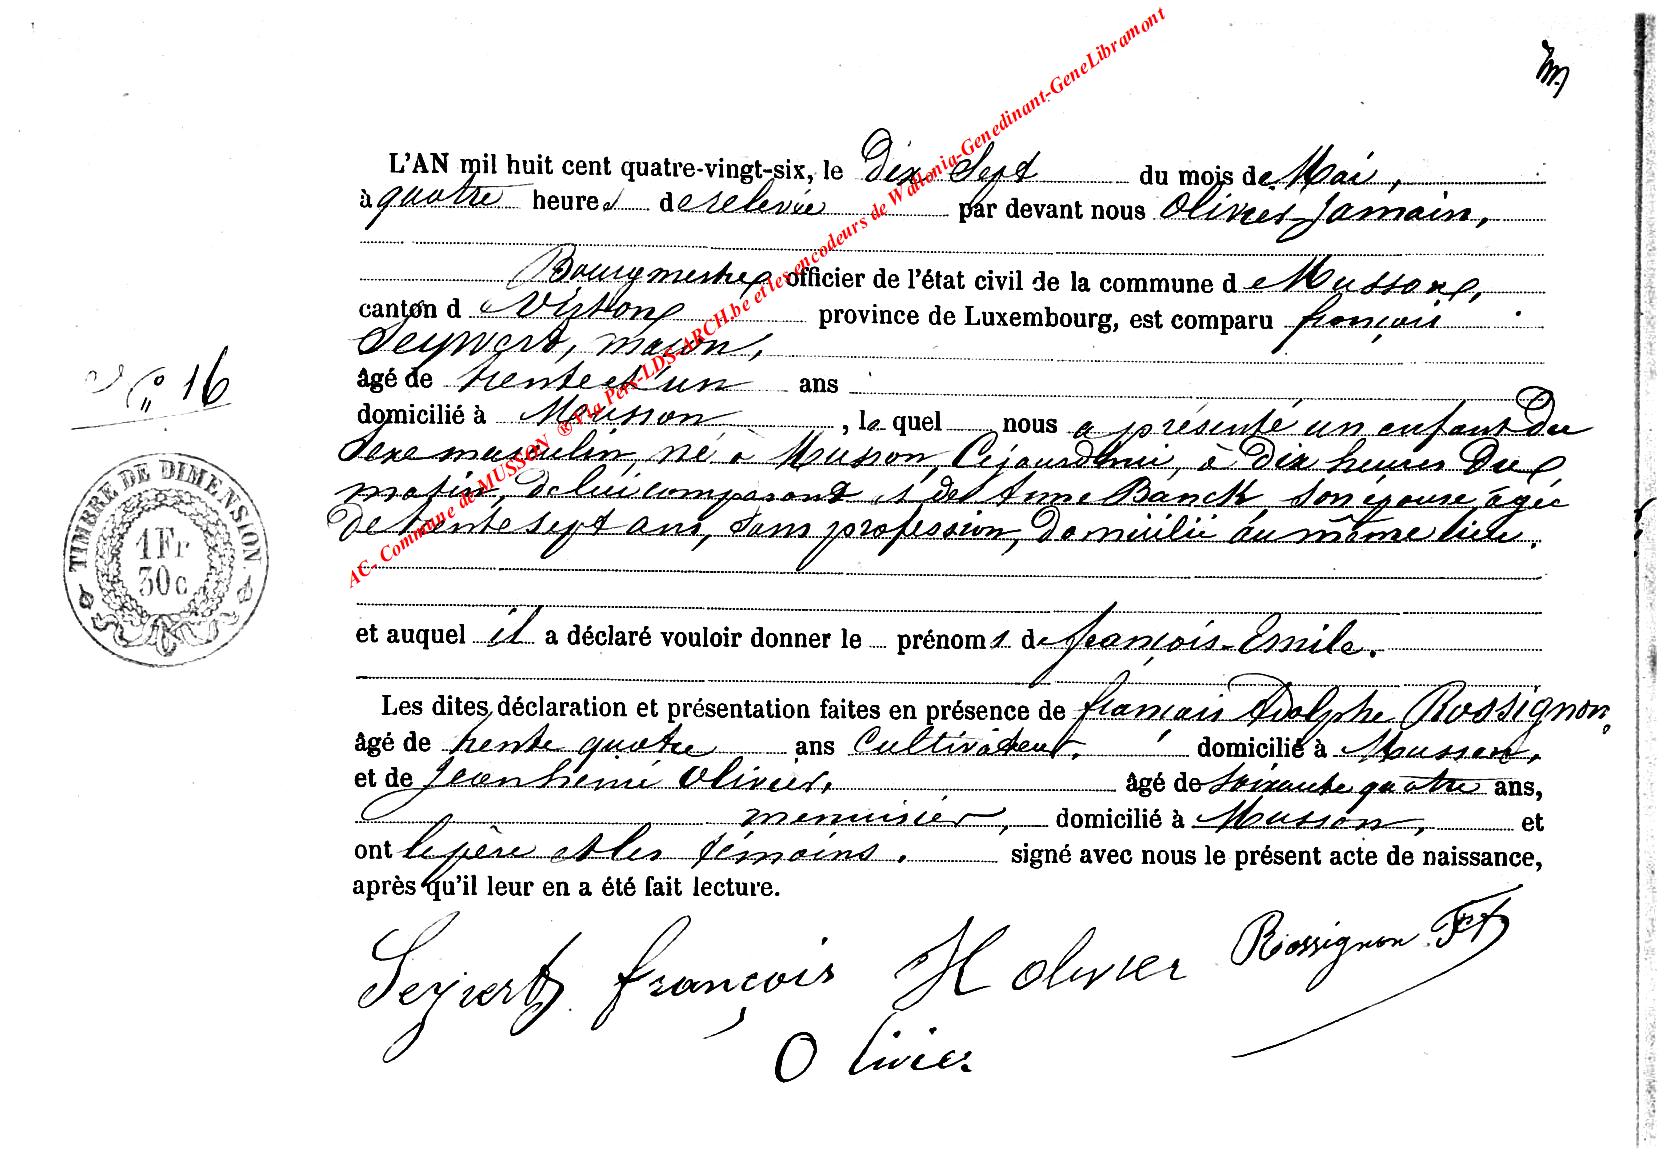 L'AN mil huit cent quatre-vingt-six, le Dix Sept du mois de Mai,
à quatre heures de relevée par devant nous Olivier Jamain,
Bourgmestre officier de l'état civil de la commune de Musson,
canton de Virton province de Luxembourg, est comparu françois
Seywert, maçon,
âgé de trente et un ans
N° 16
domicilié à Musson, lequel nous a présenté un enfant du
Sexe masculin, né à Musson, Cejourdhui, à dix heures du
matin, de lui comparant & de Anne Banck son épouse âgée
de trente sept ans, sans profession, domicilié au même lieu.
TIMBRE DE DIMENSION
1 Fr
30 c
et auquel il a déclaré vouloir donner le prénoms de françois-Emile.
Les dites déclaration et présentation faites en présence de françois Adolphe Rossignon,
âgé de trente quatre ans Cultivateur, domicilié à Musson,
et de Jean henri Olivier, âgé de soixante quatre ans,
menuisier, domicilié à Musson, et
ont le père et les témoins. signé avec nous le présent acte de naissance,
après qu'il leur en a été fait lecture.
Seywert françois H Olivier Rossignon
Olivier
AC- Commune de MUSSON ® Via Peix-LDS-ARCH.be et les encodeurs de Wallonia-Genedinant-GeneLibramont